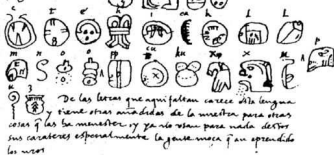 t e h i ca k l l
m n o o pp cu ku x x u p
u z De las letras que aqui faltan carece esta lengua
y tiene otras añadidas de la nuestra para otras
cosas q̃ las ha menester, y ya no usan para nada destos
sus carateres especialmente la gente moça q̃ an aprendido
los nros